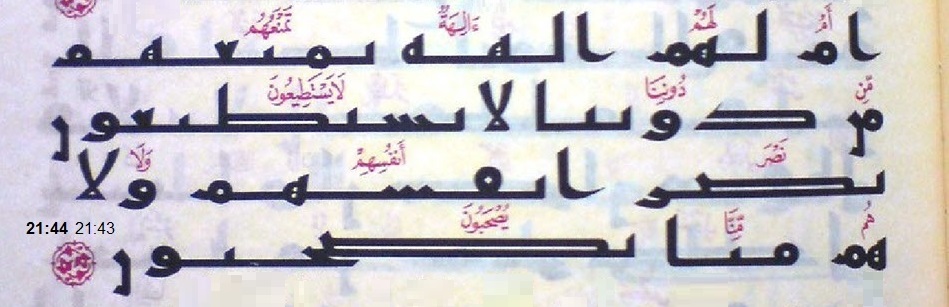 أَمْ لَهُمْ ءَالِهَةٌ تَمْنَعُهُم
ام لهم الهه تمنعهم
مِّن دُونِنَا لَا يَسْتَطِيعُونَ
من دوننا لا يستطيعون
نَصْرَ أَنفُسِهِمْ وَلَا
نصر انفسهم ولا
هُم مِّنَّا يُصْحَبُونَ
هم منا يصحبون
21:44 21:43